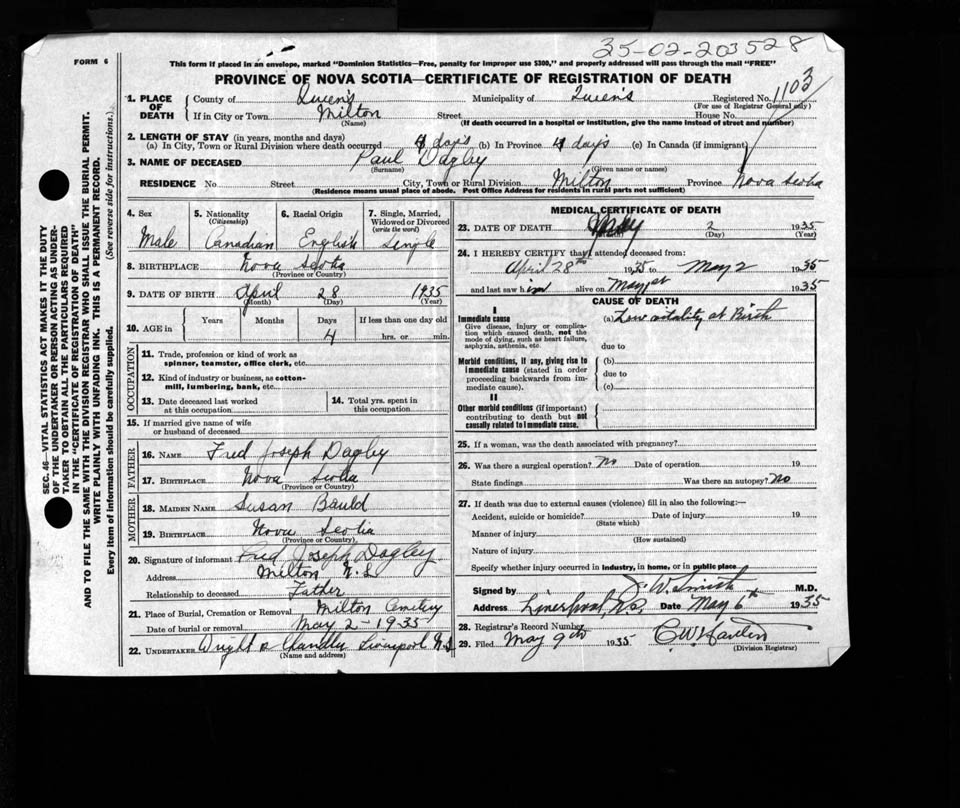 35-02-203528
FORM 6
This form if placed in an envelope, marked "Dominion Statistics—Free, penalty for improper use $300," and properly addressed will pass through the mail "FREE"
PROVINCE OF NOVA SCOTIA—CERTIFICATE OF REGISTRATION OF DEATH
1. PLACE OF DEATH
County of Queen's Municipality of Queen's Registered No. 1103
(For use of Registrar General only)
If in City or Town Milton Street House No.
(Name) (If death occurred in a hospital or institution, give the name instead of street and number)
2. LENGTH OF STAY (in years, months and days)
(a) In City, Town or Rural Division where death occurred 4 days (b) In Province 4 days (c) In Canada (if immigrant)
3. NAME OF DECEASED Paul Dagley
(Surname) (Given name or names)
RESIDENCE No. Street City, Town or Rural Division Milton Province Nova Scotia
(Residence means usual place of abode. Post Office Address for residents in rural parts not sufficient)
4. Sex
Male
5. Nationality (Citizenship)
Canadian
6. Racial Origin
English
7. Single, Married, Widowed or Divorced (write the word)
Single
8. BIRTHPLACE Nova Scotia
(Province or Country)
9. DATE OF BIRTH April 28 1935
(Month) (Day) (Year)
10. AGE in Years Months Days If less than one day old
4 hrs. or min.
OCCUPATION
11. Trade, profession or kind of work as spinner, teamster, office clerk, etc.
12. Kind of industry or business, as cotton-mill, lumbering, bank, etc.
13. Date deceased last worked at this occupation
14. Total yrs. spent in this occupation
15. If married give name of wife or husband of deceased
FATHER
16. NAME Fred Joseph Dagley
17. BIRTHPLACE Nova Scotia
(Province or Country)
MOTHER
18. MAIDEN NAME Susan Bauld
19. BIRTHPLACE Nova Scotia
(Province or Country)
20. Signature of informant Fred Joseph Dagley
Address Milton N.S.
Relationship to deceased Father
21. Place of Burial, Cremation or Removal Milton Cemetery
Date of burial or removal May 2-1935
22. UNDERTAKER Wright & Chandler Liverpool N.S
(Name and address)
MEDICAL CERTIFICATE OF DEATH
23. DATE OF DEATH May 2 1935
(Month) (Day) (Year)
24. I HEREBY CERTIFY that I attended deceased from:
April 28th 1935 to May 2 1935
and last saw him alive on May 1st 1935
CAUSE OF DEATH
I
Immediate cause (a) Low vitality at Birth
Give disease, injury or complication which caused death, not the mode of dying, such as heart failure, asphyxia, asthenia, etc.
due to
Morbid conditions, if any, giving rise to immediate cause (stated in order proceeding backwards from immediate cause).
(b)
due to
(c)
II
Other morbid conditions (if important) contributing to death but not causally related to immediate cause.
25. If a woman, was the death associated with pregnancy?
26. Was there a surgical operation? No Date of operation 19
State findings Was there an autopsy? No
27. If death was due to external causes (violence) fill in also the following:—
Accident, suicide or homicide? Date of injury 19
(State which)
Manner of injury
(How sustained)
Nature of injury
Specify whether injury occurred in industry, in home, or in public place
Signed by J. W. Smith M.D.
Address Liverpool, N.S. Date May 6th 1935
28. Registrar's Record Number
29. Filed May 9th 1935
(Division Registrar)
SEC. 46—VITAL STATISTICS ACT MAKES IT THE DUTY
OF THE UNDERTAKER OR PERSON ACTING AS UNDERTAKER TO OBTAIN ALL THE PARTICULARS REQUIRED
IN THE "CERTIFICATE OF REGISTRATION OF DEATH"
AND TO FILE THE SAME WITH THE DIVISION REGISTRAR WHO SHALL ISSUE THE BURIAL PERMIT.
WRITE PLAINLY WITH UNFADING INK. THIS IS A PERMANENT RECORD.
Every item of information should be carefully supplied. (See reverse side for instructions.)